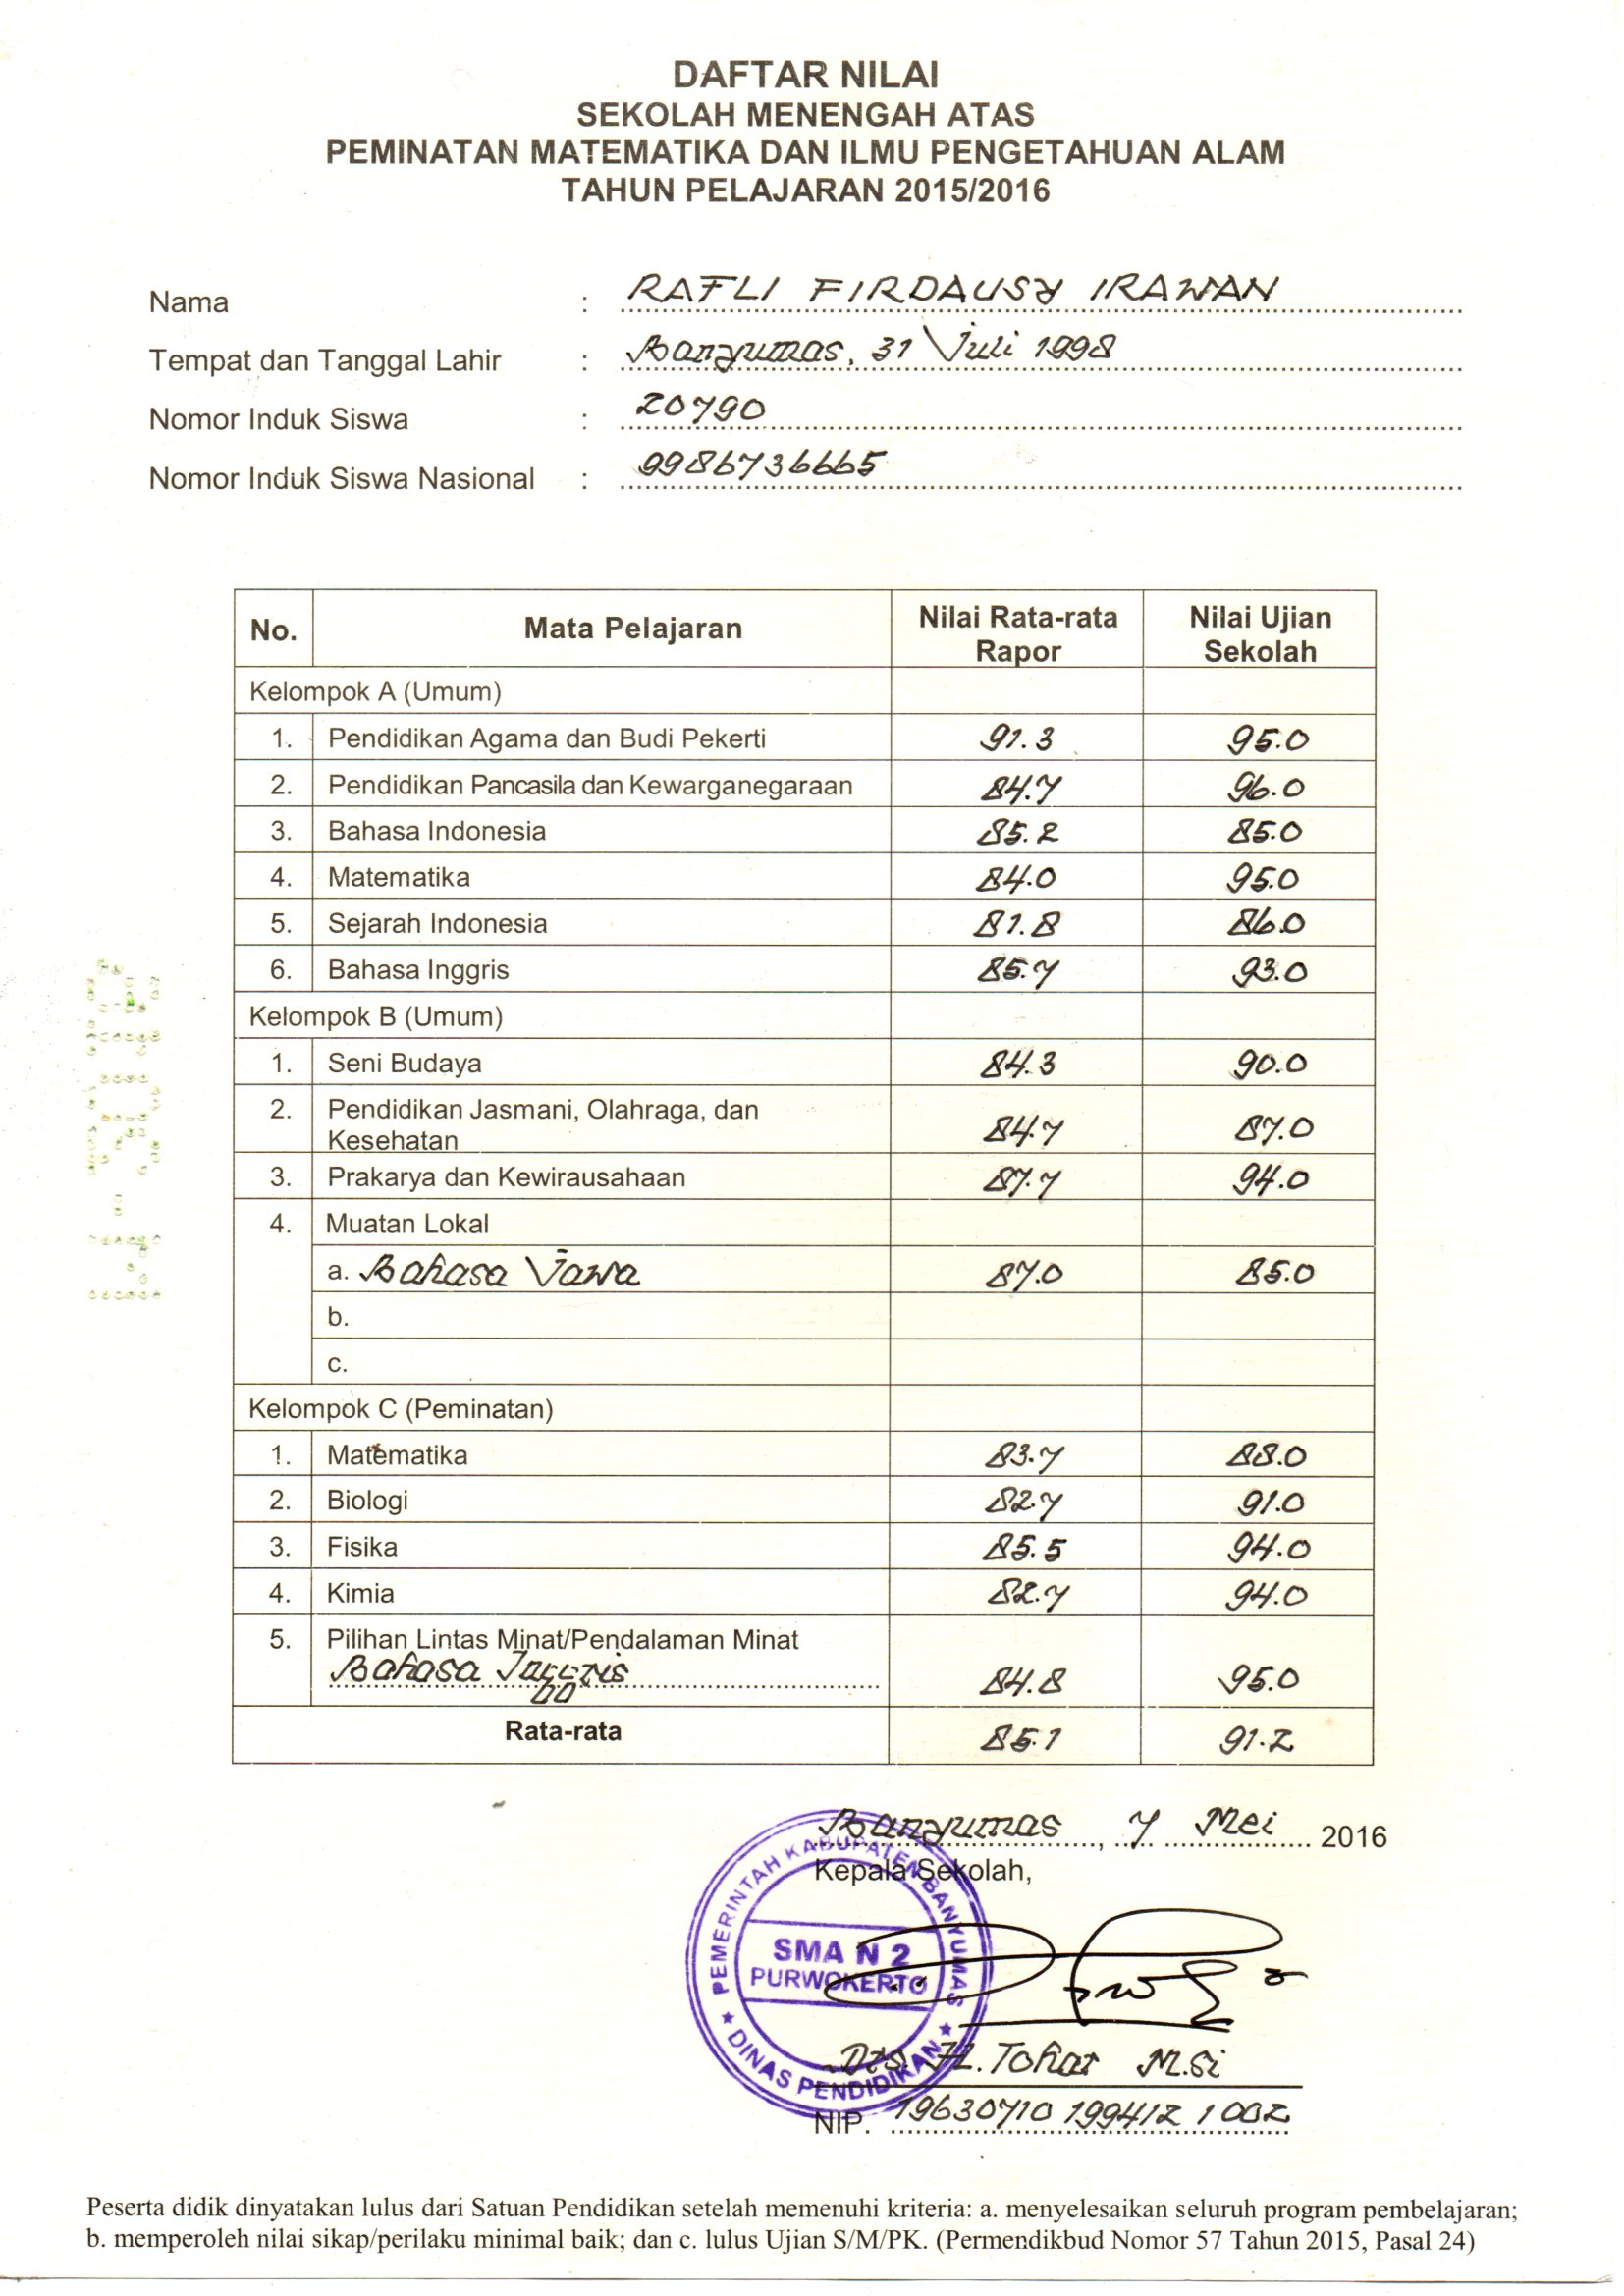 DAFTAR NILAI
SEKOLAH MENENGAH ATAS
PEMINATAN MATEMATIKA DAN ILMU PENGETAHUAN ALAM
TAHUN PELAJARAN 2015/2016
Nama : RAFLI FIRDAUSY IRAWAN
Tempat dan Tanggal Lahir : Banyumas, 31 Juli 1998
Nomor Induk Siswa : 20790
Nomor Induk Siswa Nasional : 9986736665
No. Mata Pelajaran Nilai Rata-rata Rapor Nilai Ujian Sekolah
Kelompok A (Umum)
1. Pendidikan Agama dan Budi Pekerti 91.3 95.0
2. Pendidikan Pancasila dan Kewarganegaraan 84.7 96.0
3. Bahasa Indonesia 85.2 85.0
4. Matematika 84.0 95.0
5. Sejarah Indonesia 81.8 86.0
6. Bahasa Inggris 85.7 93.0
Kelompok B (Umum)
1. Seni Budaya 84.3 90.0
2. Pendidikan Jasmani, Olahraga, dan
Kesehatan 84.7 87.0
3. Prakarya dan Kewirausahaan 87.7 94.0
4. Muatan Lokal
a. Bahasa Jawa 87.0 85.0
b.
c.
Kelompok C (Peminatan)
1. Matematika 83.7 88.0
2. Biologi 82.7 91.0
3. Fisika 85.5 94.0
4. Kimia 82.7 94.0
5. Pilihan Lintas Minat/Pendalaman Minat
Bahasa Inggris 84.8 95.0
Rata-rata 85.1 91.2
Banyumas, 7 Mei 2016
Kepala Sekolah,
PEMERINTAH KABUPATEN BANYUMAS
SMA N 2
PURWOKERTO
DINAS PENDIDIKAN
Drs. H. Tohar M.Si
NIP. 19630710 199412 1 002
Peserta didik dinyatakan lulus dari Satuan Pendidikan setelah memenuhi kriteria: a. menyelesaikan seluruh program pembelajaran;
b. memperoleh nilai sikap/perilaku minimal baik; dan c. lulus Ujian S/M/PK. (Permendikbud Nomor 57 Tahun 2015, Pasal 24)